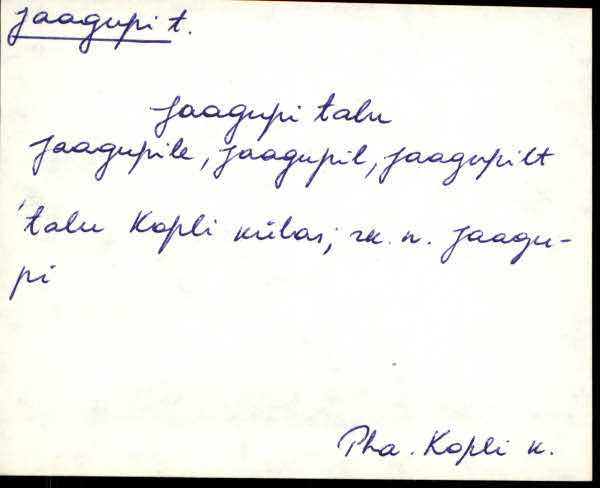 Jaagupi t.
Jaagupi talu
Jaagupile, Jaagupil, Jaagupilt
talu Kopli külas; rk. n. Jaagu-
pi
Pha. Kopli k.